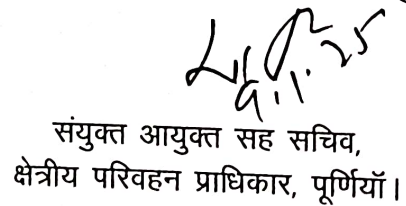 9.1.25
संयुक्त आयुक्त सह सचिव,
क्षेत्रीय परिवहन प्राधिकार, पूर्णियाॅ।